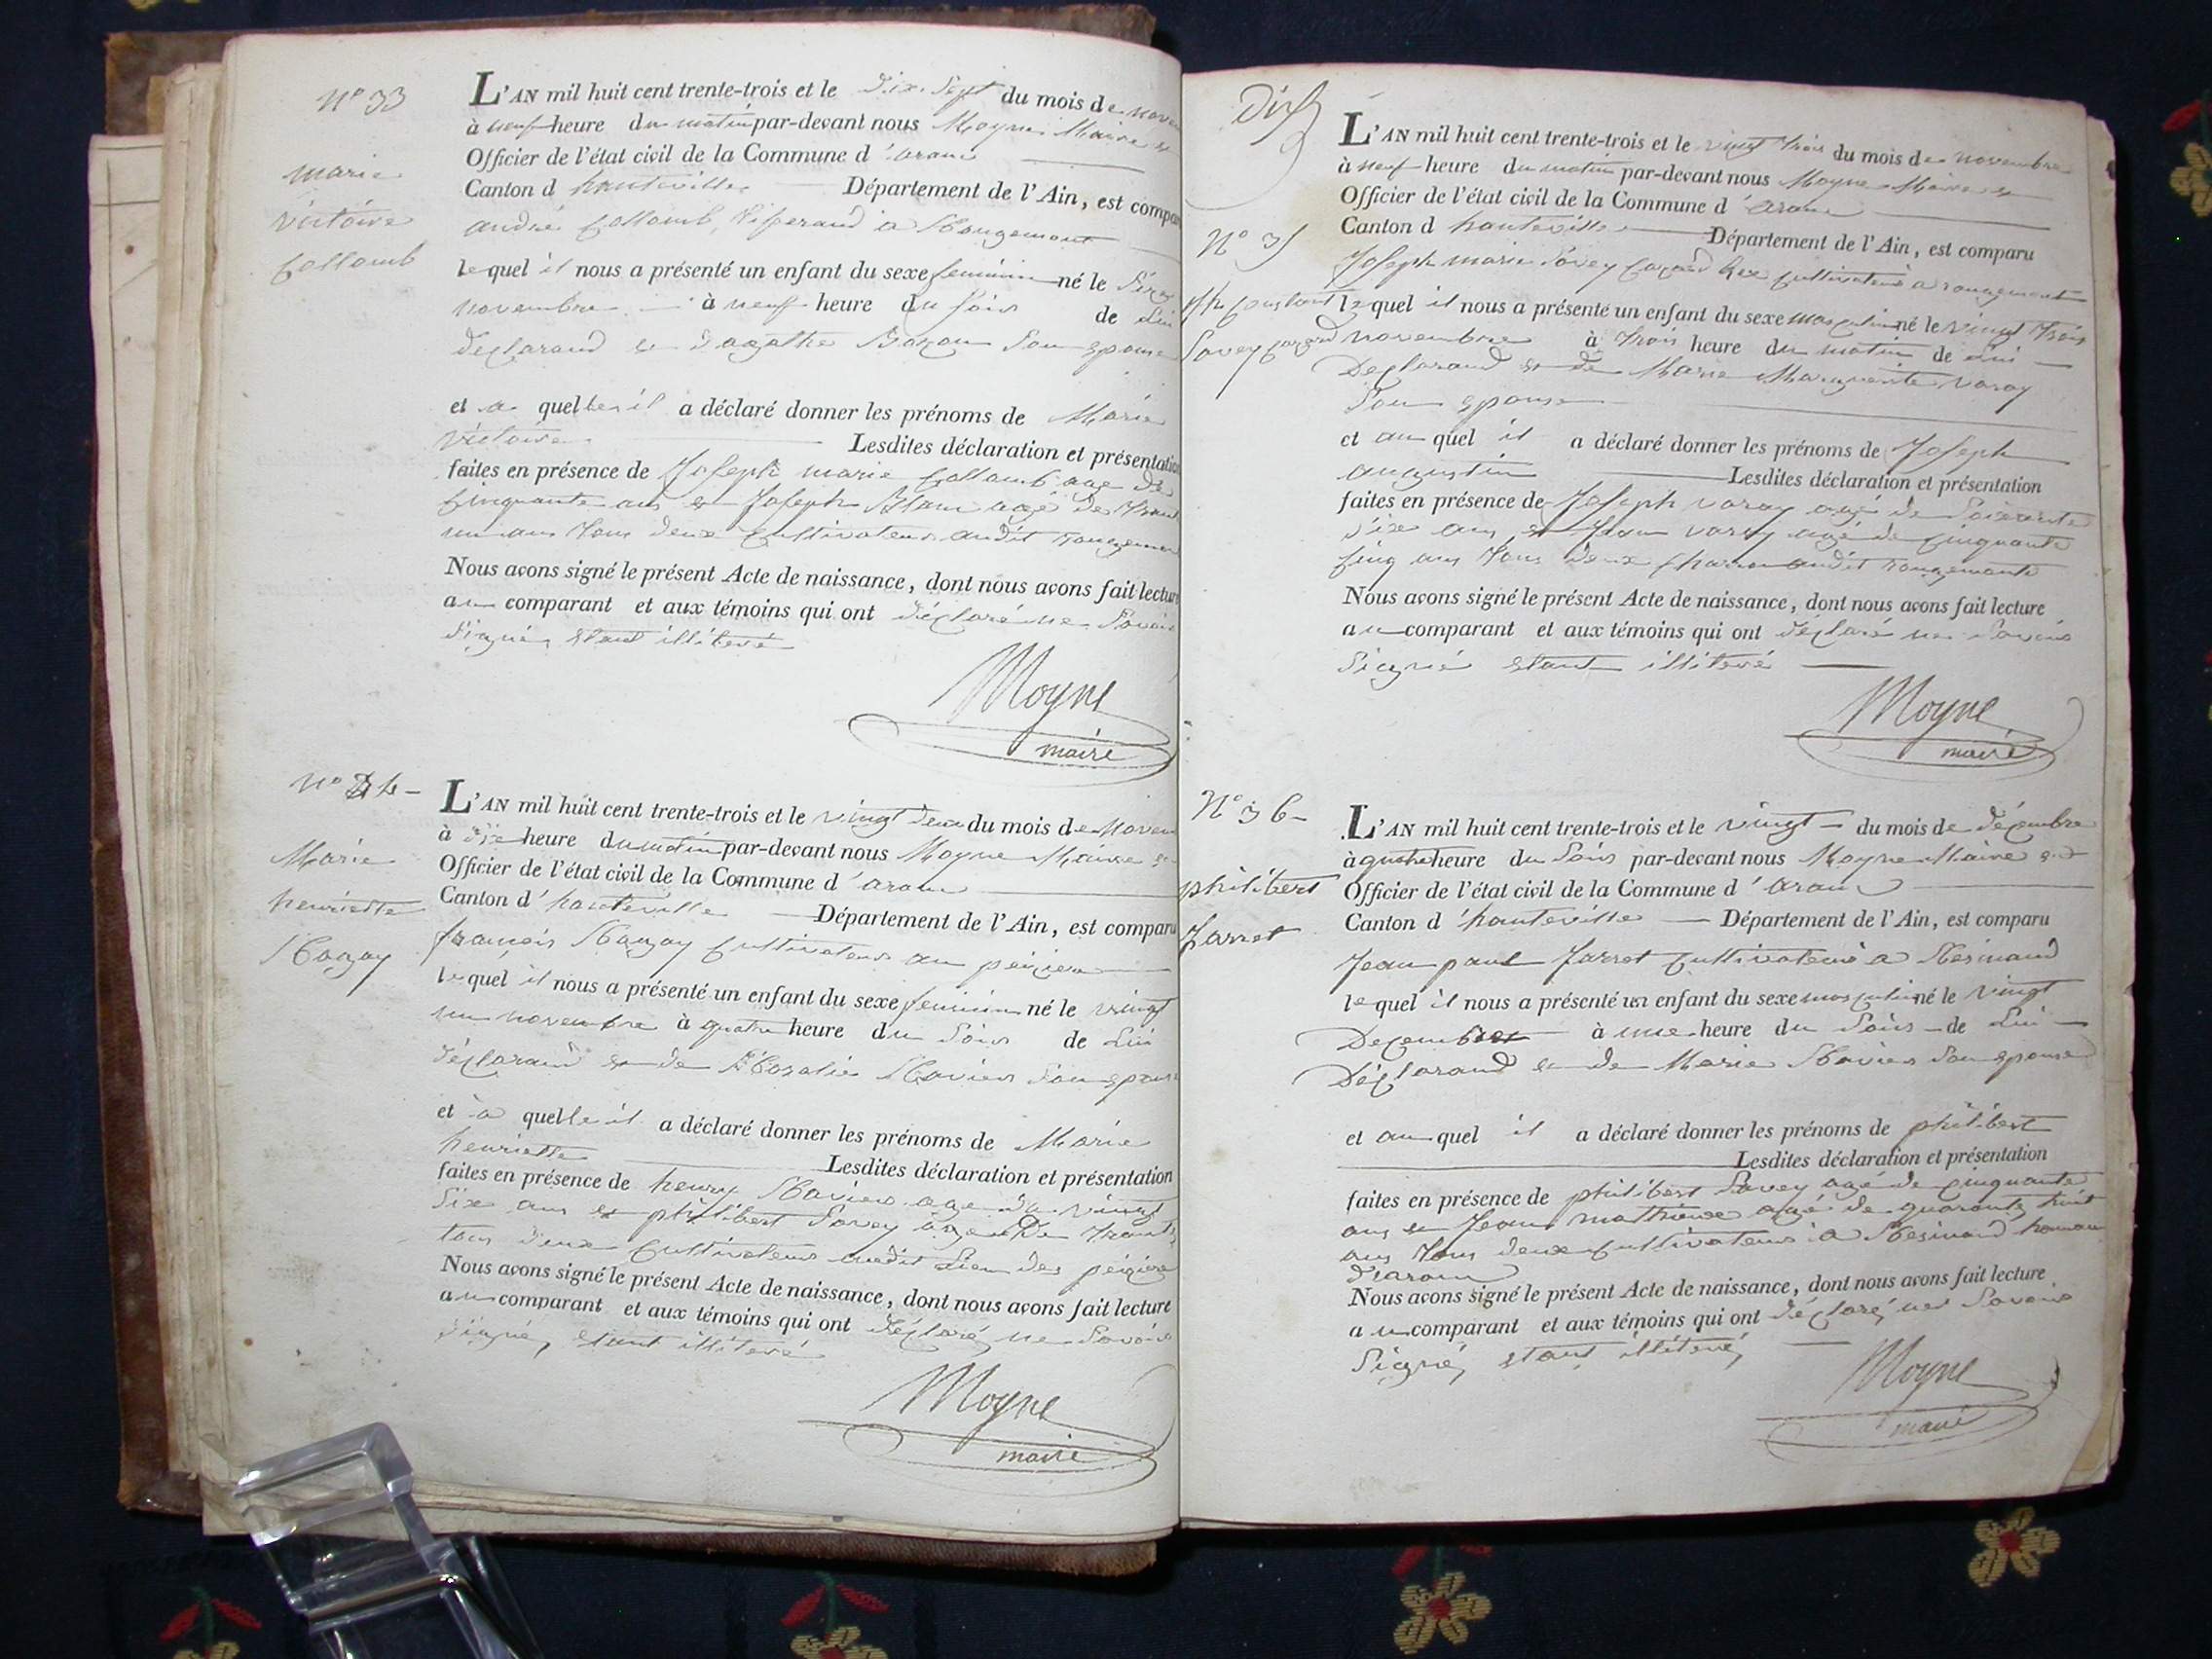 N° 33
marie
victoire
Collomb
L'AN mil huit cent trente-trois et le dix Sept du mois de
à neuf heure du matin par-devant nous Moyne Maire et
Officier de l'état civil de la Commune d'aranc
Canton d hauteville Département de l'Ain, est compar
andré Collomb, à Rougemont
lequel il nous a présenté un enfant du sexe feminin né le
novembre à neuf heure du soir de Lui
declarand et d'agathe Son epouse
et a quelle il a déclaré donner les prénoms de Marie
Victoire Lesdites déclaration et présentation
faites en présence de Joseph marie Collomb age de
Cinquante ans et Joseph agé de
un ans tous deux Cultivateurs audit rougemont
Nous avons signé le présent Acte de naissance, dont nous avons fait lecture
au comparant et aux témoins qui ont déclaré ne Savoir
Signé, etant illiteré
Moyne
maire
N° 34
Marie
henriette
L'AN mil huit cent trente-trois et le vingt deux du mois de Novem
à dix heure du matin par-devant nous Moyne Maire et
Officier de l'état civil de la Commune d'aranc
Canton d'hauteville Département de l'Ain, est comparu
françois Cultivateur au
lequel il nous a présenté un enfant du sexe feminin né le vingt
un novembre à quatre heure du Soir de Lui
déclarand et de Rosalie Son epouse
et à quelle il a déclaré donner les prénoms de Marie
henriette Lesdites déclaration et présentation
faites en présence de henry age de vingt
Six ans et philibert Savey age De trante
tous deux Cultivateurs audit Lieu des
Nous avons signé le présent Acte de naissance, dont nous avons fait lecture
au comparant et aux témoins qui ont déclaré, ne Savoir
Signé, etant illiteré
Moyne
maire
N° 35
L'AN mil huit cent trente-trois et le vingt trois du mois de novembre
à neuf heure du matin par-devant nous Moyne Maire et
Officier de l'état civil de la Commune d'aranc
Canton d hauteville Département de l'Ain, est comparu
Joseph marie Savey Cultivateur a rougemont
lequel il nous a présenté un enfant du sexe masculin né le vingt trois
Savey novembre à trois heure du matin de Lui
Declarand et de Marie Marguerite varay
Son epouse
et au quel il a déclaré donner les prénoms de Joseph
augustin Lesdites déclaration et présentation
faites en présence de Joseph varay agé de Soixante
dix ans et Jean varay agé de Cinquante
Cinq ans tous deux audit rougemont
Nous avons signé le présent Acte de naissance, dont nous avons fait lecture
au comparant et aux témoins qui ont déclaré ne Savoir
Signé etant illiteré
Moyne
maire
N° 36
philibert
Jarret
L'AN mil huit cent trente-trois et le vingt du mois de décembre
à quatre heure du Soir par-devant nous Moyne Maire et
Officier de l'état civil de la Commune d'aranc
Canton d'hauteville Département de l'Ain, est comparu
Jean paul Jarret Cultivateur a Résinand
lequel il nous a présenté un enfant du sexe masculin né le vingt
Decembre à une heure du Soir de Lui
Déclarand et de Marie Son epouse
et au quel il a déclaré donner les prénoms de philibert
Lesdites déclaration et présentation
faites en présence de philibert Savey agé de Cinquante
ans et Jean mathieux agé de quarante huit
ans tous deux Cultivateurs à Résinand hameau
d'aranc
Nous avons signé le présent Acte de naissance, dont nous avons fait lecture
au comparant et aux témoins qui ont déclaré, ne Savoir
Signé, etant illiteré,
Moyne
maire